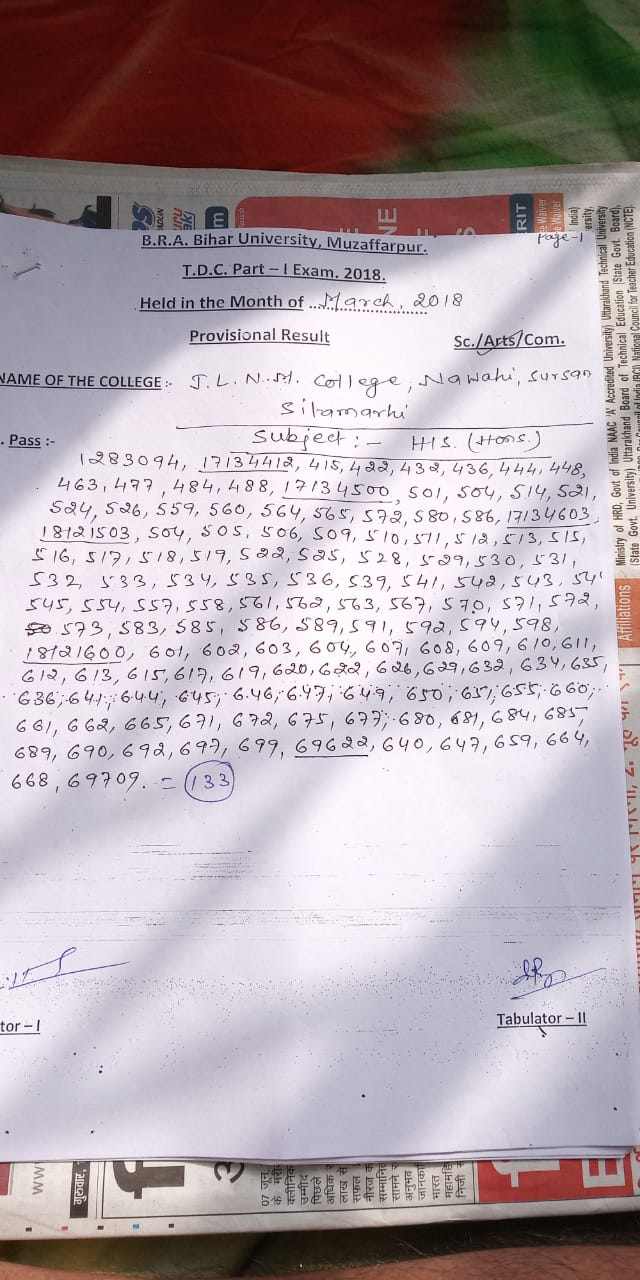 page-1
B.R.A. Bihar University, Muzaffarpur.
T.D.C. Part – I Exam. 2018.
Held in the Month of ..March, 2018
Provisional Result
Sc./Arts/Com.
NAME OF THE COLLEGE :- J. L. N. M. College, Nawahi, Sursan
Sitamarhi
. Pass :-
Subject :- HIS. (Hons.)
1283094, 17134412, 415, 422, 432, 436, 444, 448,
463, 477, 484, 488, 17134500, 501, 504, 514, 521,
524, 526, 559, 560, 564, 565, 572, 580, 586, 17134603,
18121503, 504, 505, 506, 509, 510, 511, 512, 513, 515,
516, 517, 518, 519, 522, 525, 528, 529, 530, 531,
532, 533, 534, 535, 536, 539, 541, 542, 543,
545, 554, 557, 558, 561, 562, 563, 567, 570, 571, 572,
573, 583, 585, 586, 589, 591, 592, 594, 598,
18121600, 601, 602, 603, 604, 607, 608, 609, 610, 611,
612, 613, 615, 617, 619, 620, 622, 626, 629, 632, 634, 635,
636, 641, 644, 645, 646, 647, 649, 650, 651, 655, 660,
661, 662, 665, 671, 672, 675, 677, 680, 681, 684, 685,
689, 690, 692, 697, 699, 69622, 640, 647, 659, 664,
668, 69709. = 133
tor – I
Tabulator – II
RIT
Ministry of HRD, Govt of India NAAC 'A' Accredited University) Uttarakhand Technical University
(State Govt. University) Uttarakhand Board of Technical Education (State Govt. Board),
National Council for Teacher Education (NCTE)
Affiliations
www
गुरुवार,